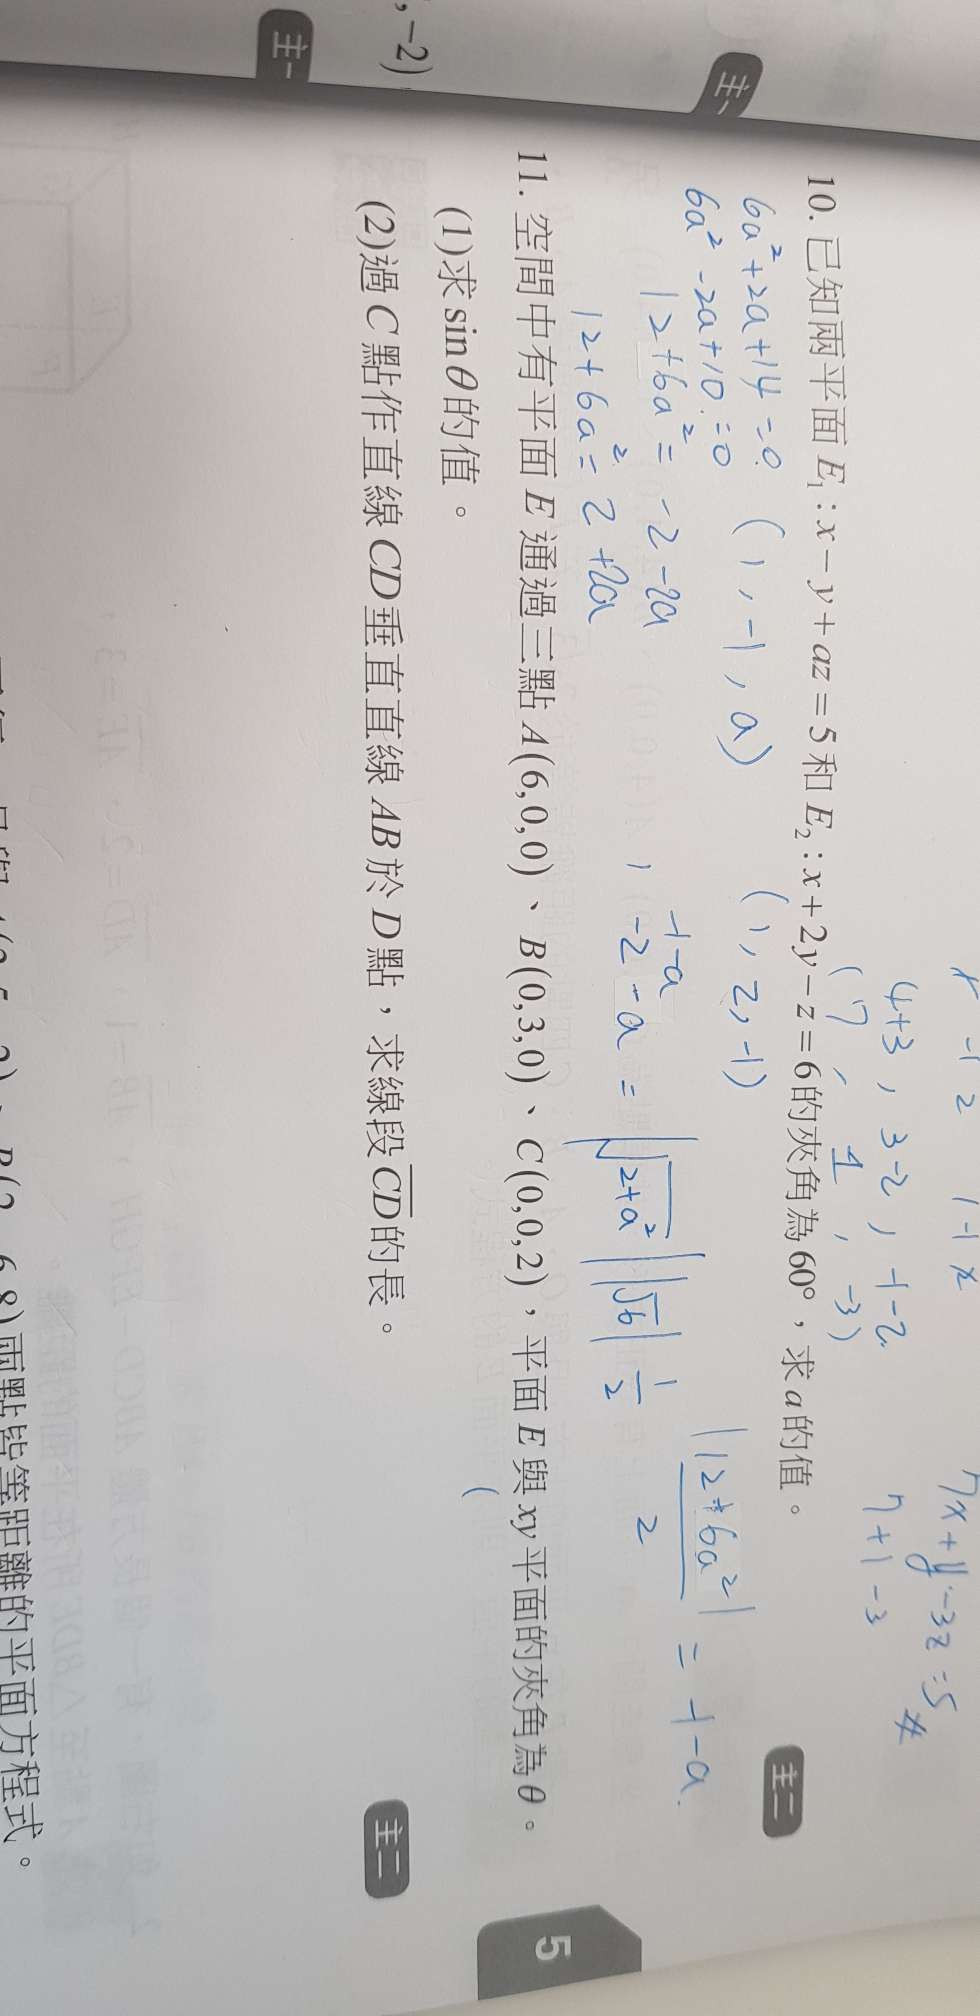 , -2)
主一
主一
r -1 2 1 -1 2
4+3 , 3-2 , -1-2.
( 7 , 1 , -3)
7x+y-3z=5 #
7+1-3
10. 已知兩平面 E₁ : x − y + az = 5 和 E₂ : x + 2y − z = 6 的夾角為 60°,求 a 的值。
主二
6a²+2a+14=0. (1, -1, a) (1, 2, -1)
6a²-2a+10=0
12+6a²= -2-2a
12+6a²= 2+2a
-1-a
-2-a = |√2+a²||√6| 1/2
|12+6a²| / 2 = -1-a.
2
11. 空間中有平面 E 通過三點 A(6,0,0)、B(0,3,0)、C(0,0,2),平面 E 與 xy 平面的夾角為 θ。
(
(1)求 sin θ 的值。
(2)過 C 點作直線 CD 垂直直線 AB 於 D 點,求線段 CD 的長。
主二
5
兩點皆等距離的平面方程式。